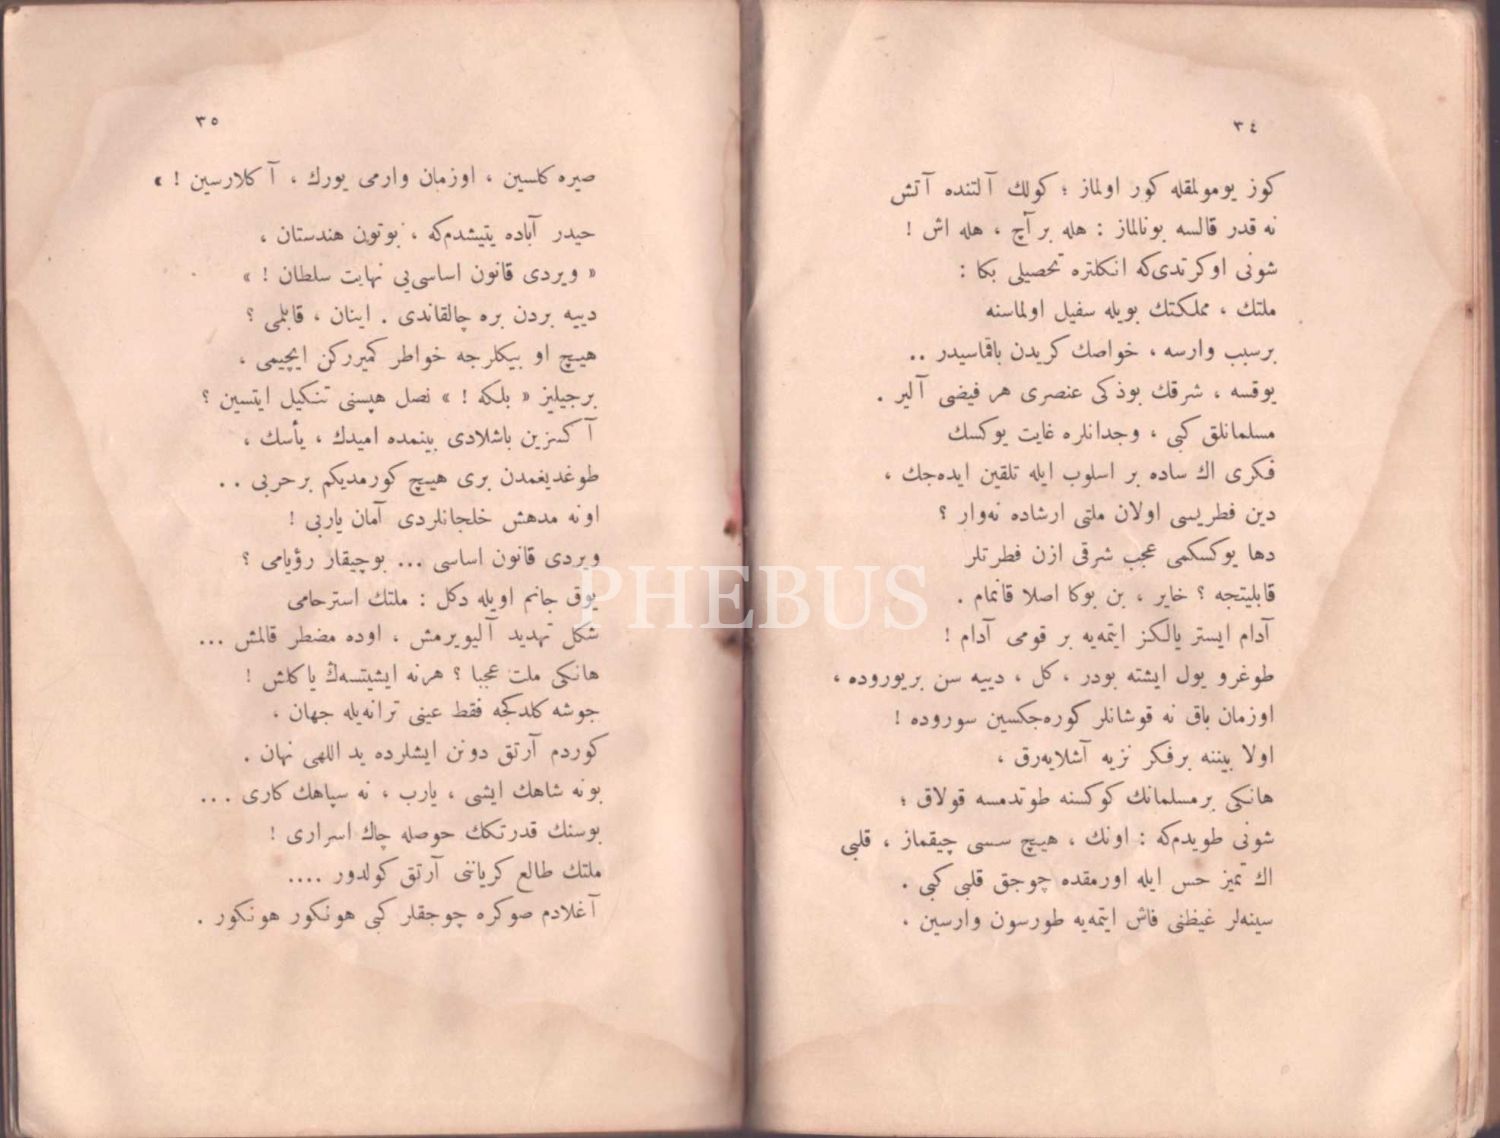 ٣٤
كوز يومولمقله كور اولماز ؛ كولك آلتنده آتش
نه قدر قالسه بونالماز : هله بر آچ ، هله اش !
شونى اوكرتدى‌كه انكلتره تحصيلى بكا :
ملتك ، مملكتك بويله سفيل اولماسنه
برسبب وارسه ، خواصك كريدن باقماسيدر ..
يوقسه ، شرقك بوذكى عنصرى هر فيضى آلير .
مسلمانلق كبى ، وجدانلره غايت يوكسك
فكرى اك ساده بر اسلوب ايله تلقين ايده‌جك ،
دين فطريسى اولان ملتى ارشاده نه‌وار ؟
دها يوكسكمى عجب شرقى ازن فطرتلر
قابليتجه ؟ خاير ، بن بوكا اصلا قانمام .
آدام ايستر يالكز ايتمه‌يه بر قومى آدام !
طوغرو يول ايشته بودر ، كل ، دييه سن بريوروده ،
اوزمان باق نه قوشانلر كوره‌جكسين سوروده !
اولا بيننه برفكر نزيه آشلايه‌رق ،
هانكى برمسلمانك كوكسنه طوتدمسه قولاق ؛
شونى طويدم‌كه : اونك ، هيچ سسى چيقماز ، قلبى
اك تميز حس ايله اورمقده چوجق قلبى كبى .
سينه‌لر غيظنى فاش ايتمه‌يه طورسون وارسين ،
٣٥
صيره كلسين ، اوزمان وارمى يورك ، آكلارسين ! »
حيدر آباده يتيشدم‌كه ، بوتون هندستان ،
« ويردى قانون اساسى‌يى نهايت سلطان ! »
دييه بردن بره چالقاندى . اينان ، قابلمى ؟
هيچ او بيكلرجه خواطر كميرركن ايچيمى ،
برجيليز « بلكه ! » نصل هپسنى تنكيل ايتسين ؟
آكسزين باشلادى بينمده اميدك ، يأسك ،
طوغديغمدن برى هيچ كورمديكم برحربى . .
اونه مدهش خلجانلردى آمان ياربى !
ويردى قانون اساسى ... بوچيقار رؤيامى ؟
يوق جانم اويله دكل : ملتك استرحامى
شكل تهديد آليويرمش ، اوده مضطر قالمش ...
هانكى ملت عجبا ؟ هرنه ايشيتسه‌ڭ ياكلش !
جوشه كلدكجه فقط عينى ترانه‌يله جهان ،
كوردم آرتق دونن ايشلرده يد اللهى نهان .
بونه شاهك ايشى ، يارب ، نه سپاهك كارى ...
بوسنك قدرتكك حوصله چاك اسرارى !
ملتك طالع كرياننى آرتق كولدور ....
آغلادم صوكره چوجقلر كبى هونكور هونكور .
PHEBUS